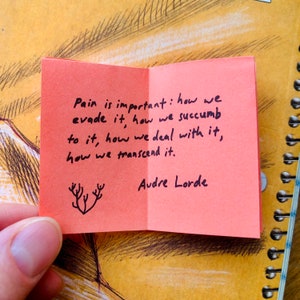 Pain is important: how we
evade it, how we succumb
to it, how we deal with it,
how we transcend it.
Audre Lorde